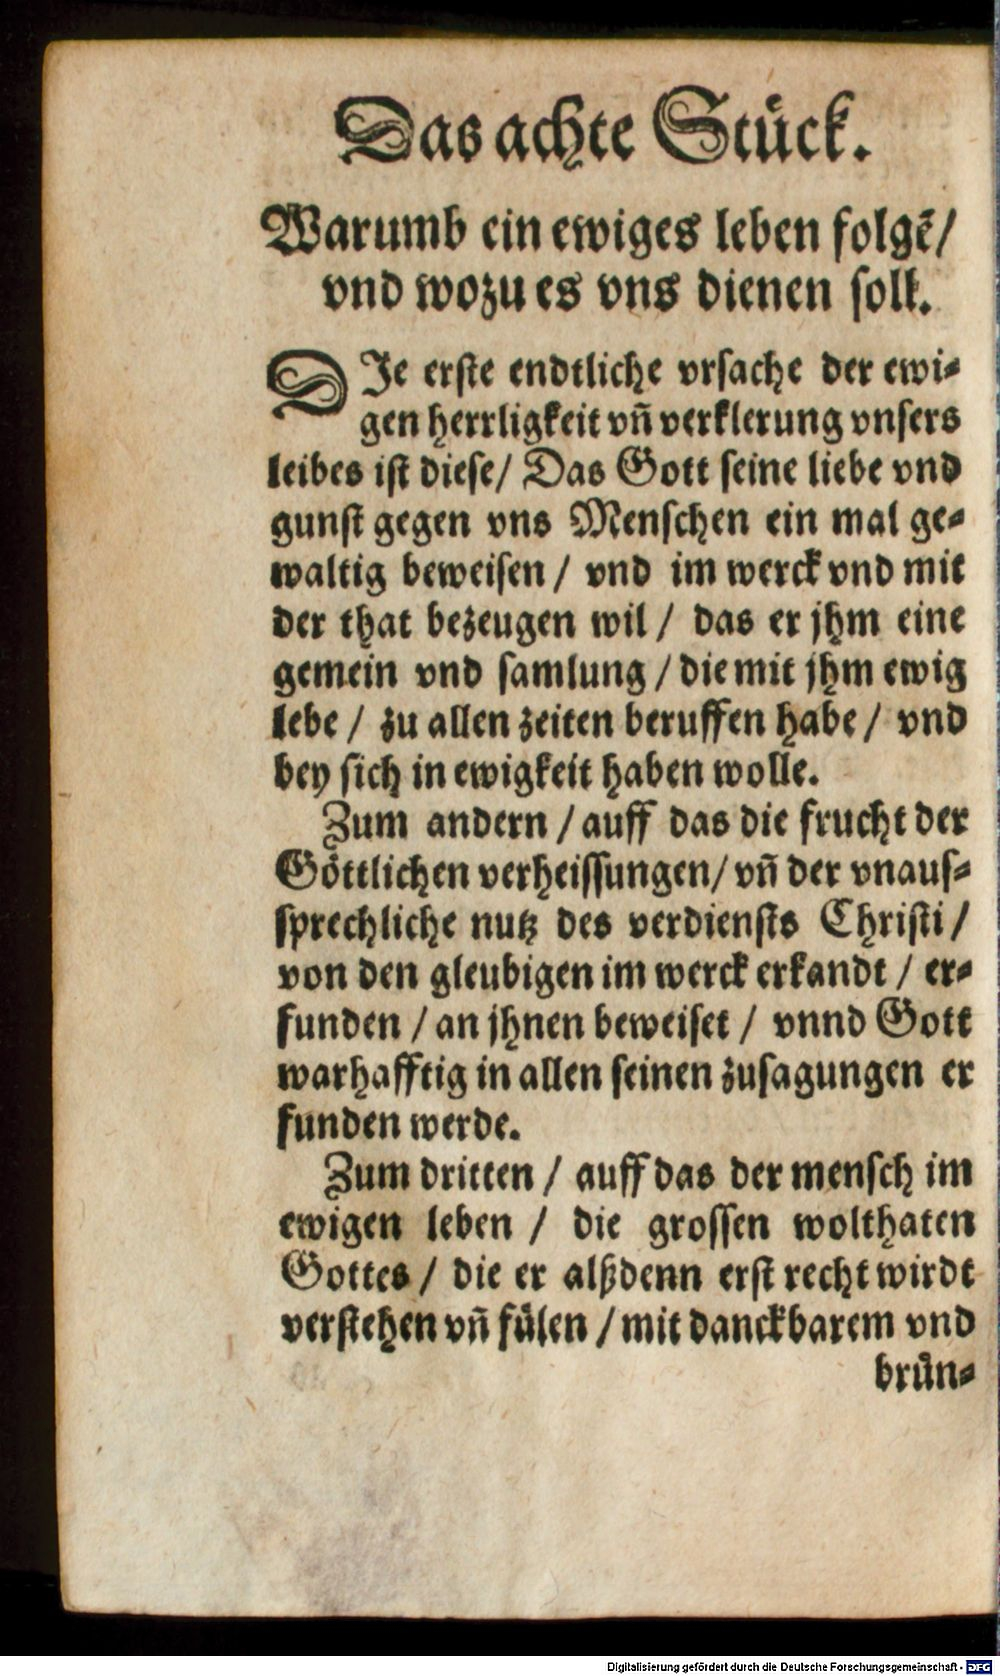 Das achte Stuͤck.
Warumb ein ewiges leben folgē/
vnd wozu es vns dienen soll.
DJe erste endtliche vrsache der ewi⸗
gen herrligkeit vñ verklerung vnsers
leibes ist diese/ Das Gott seine liebe vnd
gunst gegen vns Menschen ein mal ge⸗
waltig beweisen / vnd im werck vnd mit
der that bezeugen wil / das er jhm eine
gemein vnd samlung / die mit jhm ewig
lebe / zu allen zeiten beruffen habe / vnd
bey sich in ewigkeit haben wolle.
Zum andern / auff das die frucht der
Goͤttlichen verheissungen/ vñ der vnaus⸗
sprechliche nutz des verdiensts Christi /
von den gleubigen im werck erkandt / er⸗
funden / an jhnen beweiset / vnnd Gott
warhafftig in allen seinen zusagungen er
funden werde.
Zum dritten / auff das der mensch im
ewigen leben / die grossen wolthaten
Gottes / die er alßdenn erst recht wirdt
verstehen vñ fuͤlen / mit danckbarem vnd
bruͤn⸗
Digitalisierung gefördert durch die Deutsche Forschungsgemeinschaft - DFG